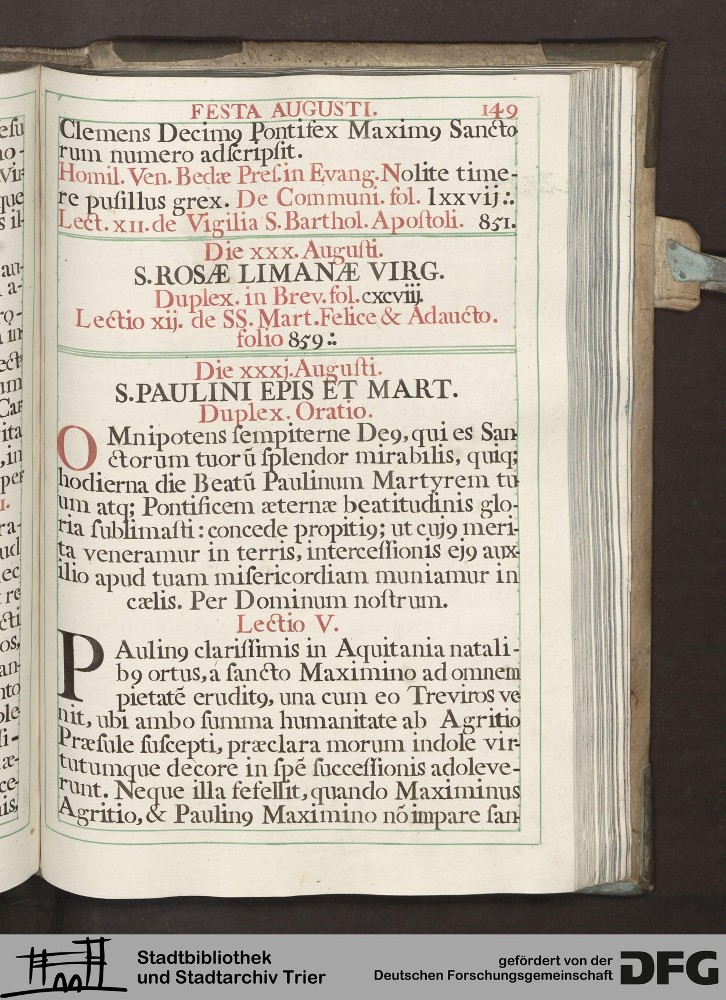 FESTA AUGUSTI. 149
Clemens Decim9 Pontifex Maxim9 Sancto
rum numero adſcripſit.
Homil. Ven. Bedæ Preſ. in Evang. Nolite time-
re puſillus grex. De Communi. fol. lxxvij:.
Lect. xii. de Vigilia S. Barthol. Apoſtoli. 851.
Die xxx. Auguſti.
S. ROSÆ LIMANÆ VIRG.
Duplex. in Brev. fol. cxcviij.
Lectio xij. de SS. Mart. Felice & Adaucto.
folio 859:.
Die xxxj. Auguſti.
S. PAULINI EPIS ET MART.
Duplex. Oratio.
OMnipotens ſempiterne De9, qui es San-
ctorum tuorū ſplendor mirabilis, quiq;
hodierna die Beatū Paulinum Martyrem tu
um atq; Pontificem æternæ beatitudinis glo-
ria ſublimaſti: concede propiti9; ut cuj9 meri-
ta veneramur in terris, interceſſionis ej9 aux-
ilio apud tuam miſericordiam muniamur in
cælis. Per Dominum noſtrum.
Lectio V.
PAulin9 clariſſimis in Aquitania natali-
b9 ortus, a ſancto Maximino ad omnem
pietatē erudit9, una cum eo Treviros ve
nit, ubi ambo ſumma humanitate ab Agritio
Præſule ſuſcepti, præclara morum indole vir-
tutumque decore in ſpē ſucceſſionis adoleve-
runt. Neque illa fefellit, quando Maximinus
Agritio, & Paulin9 Maximino nō impare ſan-
Stadtbibliothek
und Stadtarchiv Trier
gefördert von der
Deutschen Forschungsgemeinschaft
DFG